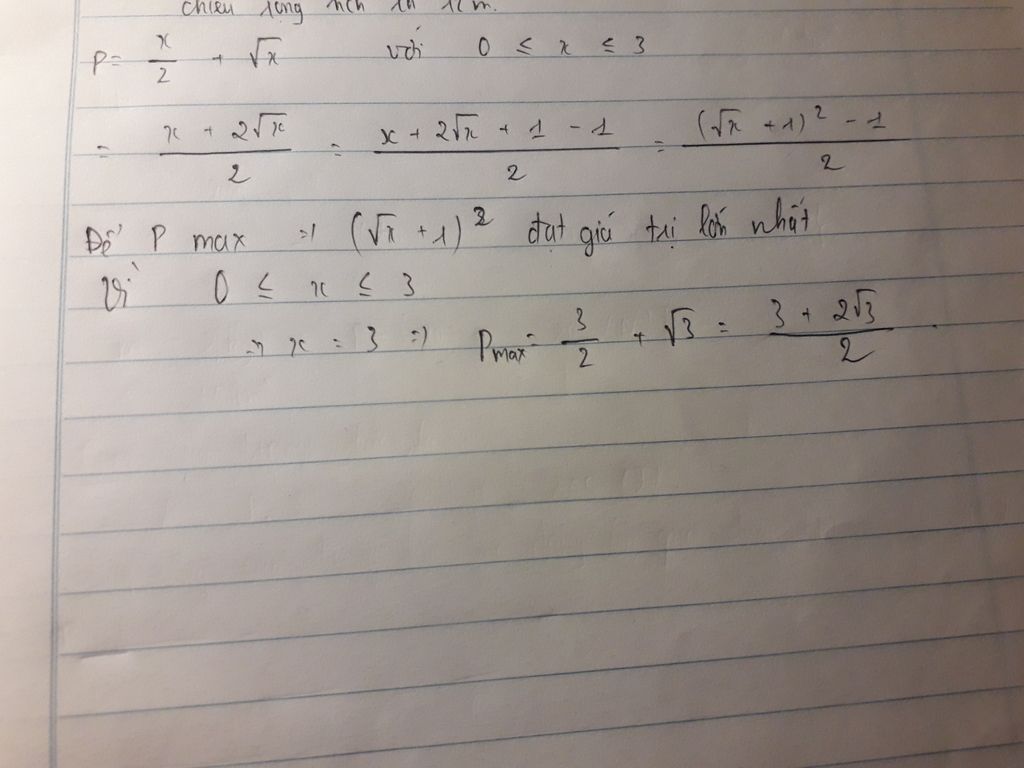 chiều rộng
P = x/2 + √x với 0 ≤ x ≤ 3
= (x + 2√x)/2 = (x + 2√x + 1 - 1)/2 = ((√x + 1)² - 1)/2
Để P max => (√x + 1)² đạt giá trị lớn nhất
Vì 0 ≤ x ≤ 3
=> x = 3 => Pmax = 3/2 + √3 = (3 + 2√3)/2 .